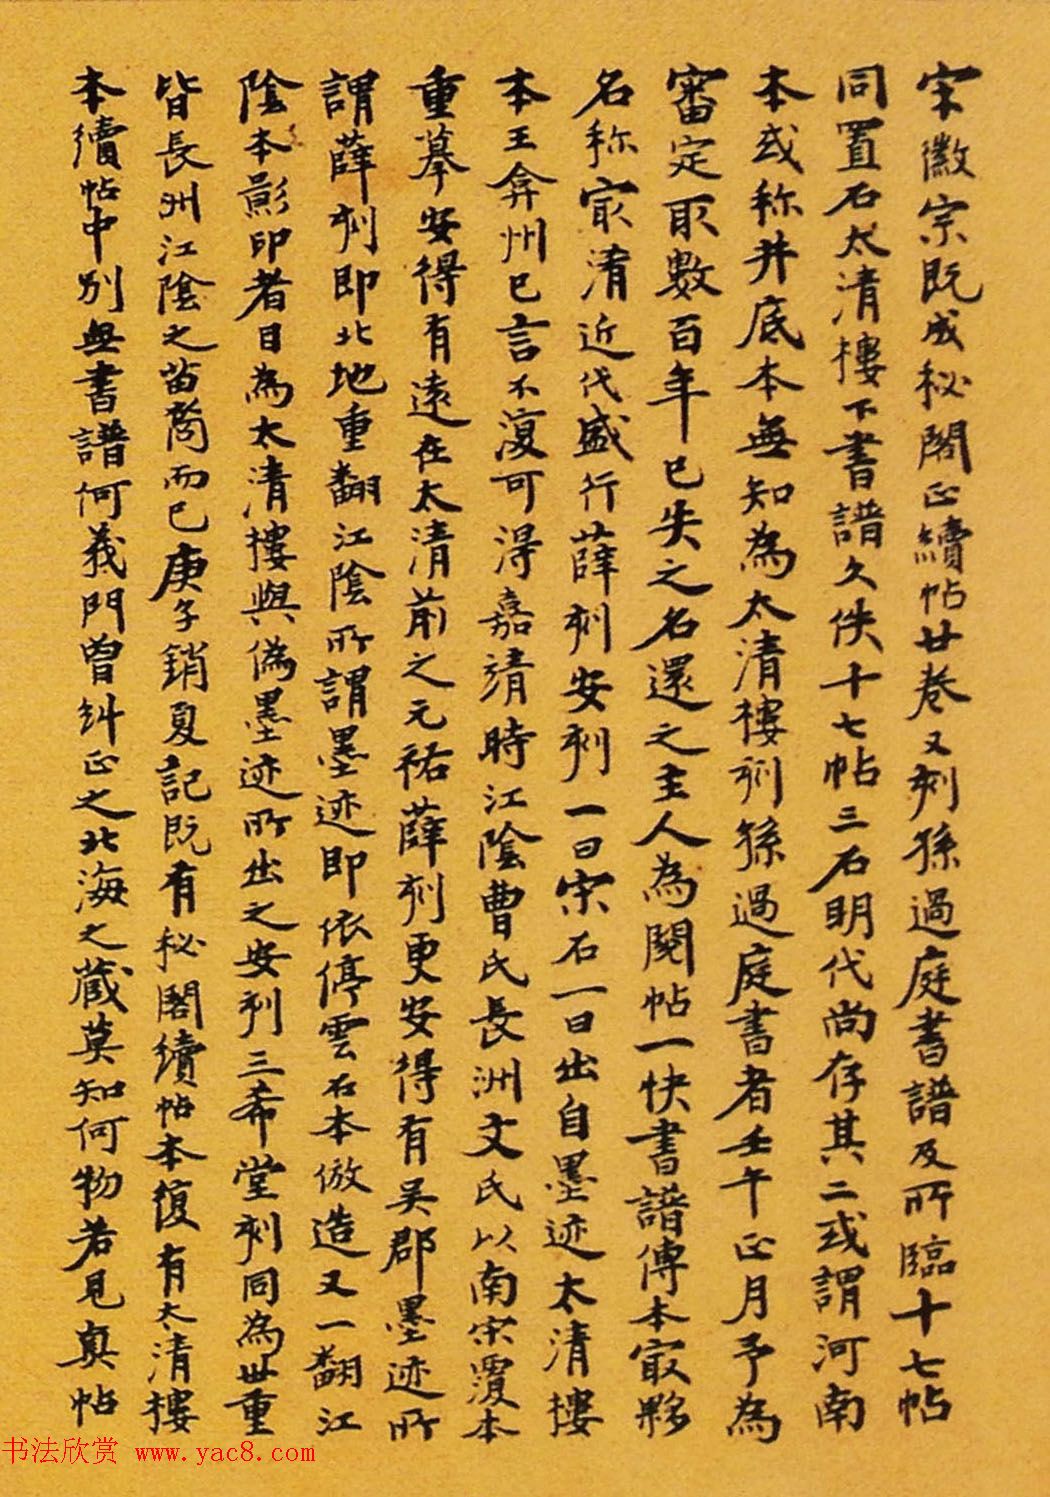 宋徽宗既成秘閣正續帖廿卷又刻孫過庭書譜及所臨十七帖
同置石太清樓下書譜久佚十七帖三石明代尚存其二或謂河南
本或称井底本無知為太清樓刻孫過庭書者壬午正月予為
審定取數百年已失之名還之主人為閱帖一快書譜傳本㝡夥
名称㝡淆近代盛行薛刻安刻一曰宋石一曰出自墨迹太清樓
本王弇州已言不復可得嘉靖時江陰曹氏長洲文氏以南宋覆本
重摹安得有遠在太清前之元祐薛刻更安得有吴郡墨迹所
謂薛刻即北地重翻江陰所謂墨迹即依停雲石本倣造又一翻江
陰本影印者目為太清樓與偽墨迹所出之安刻三希堂刻同為世重
皆長洲江陰之苗裔而已庚子銷夏記既有秘閣續帖本復有太清樓
本續帖中別無書譜何義門曾糾正之北海之藏莫知何物若見真帖
书法欣赏 www.yac8.com